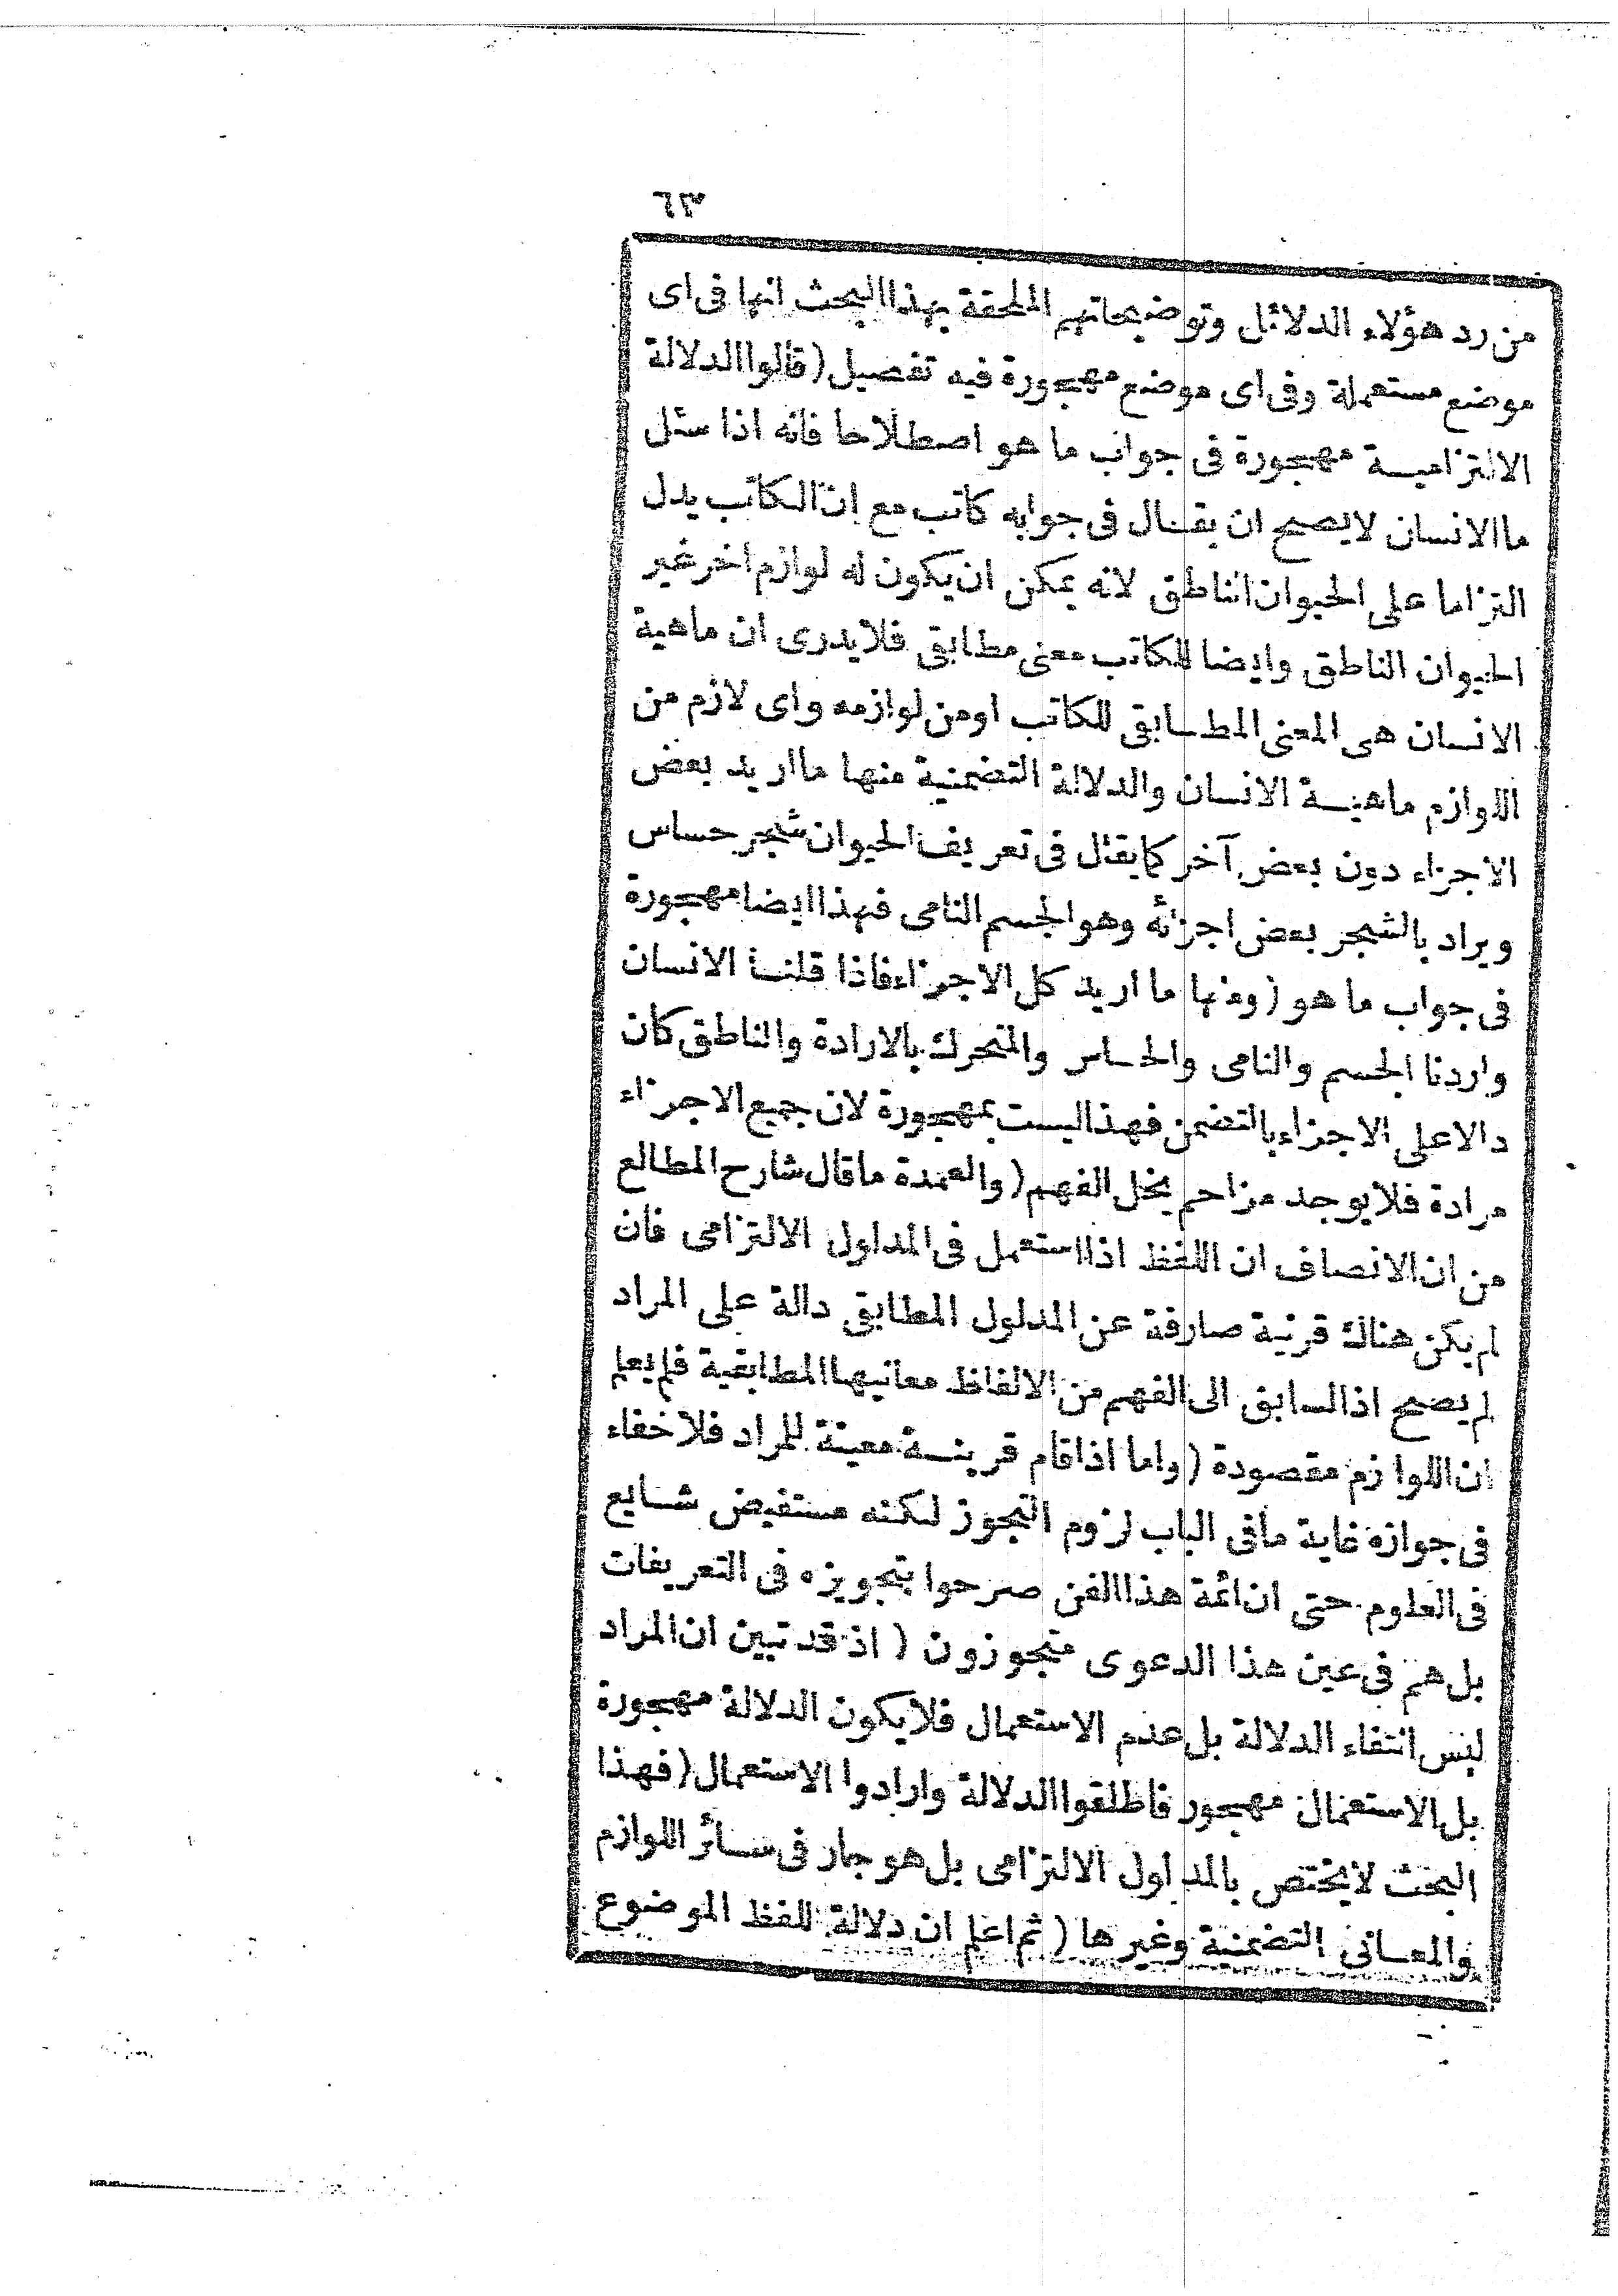 ٦٣
من رد هؤلاء الدلائل وتوضيحاتهم الملحقة بهذا البحث انها فى اى
موضع مستعملة وفى اى موضع مهجورة فيه تفصيل (قالوا الدلالة
الالتزامية مهجورة فى جواب ما هو اصطلاحا فانه اذا سئل
ما الانسان لا يصح ان يقال فى جوابه كاتب مع ان الكاتب يدل
التزاما على الحيوان الناطق لانه يمكن ان يكون له لوازم اخر غير
الحيوان الناطق وايضا للكاتب معنى مطابقى فلا يدرى ان ماهية
الانسان هى المعنى المطابقى للكاتب او من لوازمه واى لازم من
اللوازم ماهية الانسان والدلالة التضمنية منها ما اريد بعض
الاجزاء دون بعض آخر كما يقال فى تعريف الحيوان شجر حساس
ويراد بالشجر بعض اجزائه وهو الجسم النامى فهذا ايضا مهجورة
فى جواب ما هو (ومنها ما اريد كل الاجزاء فاذا قلنا الانسان
واردنا الجسم والنامى والحساس والمتحرك بالارادة والناطق كان
دالا على الاجزاء بالتضمن فهذا ليست بمهجورة لان جميع الاجزاء
مرادة فلا يوجد مزاحم يخل الفهم (والعمدة ما قال شارح المطالع
من ان الانصاف ان اللفظ اذا استعمل فى المدلول الالتزامى فان
لم يكن هناك قرينة صارفة عن المدلول المطابقى دالة على المراد
لم يصح اذ السابق الى الفهم من الالفاظ معانيها المطابقية فلم يعلم
ان اللوازم مقصودة (واما اذا قام قرينة معينة للمراد فلا خفاء
فى جوازه غاية ما فى الباب لزوم التجوز لكنه مستفيض شايع
فى العلوم حتى ان ائمة هذا الفن صرحوا بتجويزه فى التعريفات
بل هم فى عين هذا الدعوى متجوزون (اذ قد تبين ان المراد
ليس انتفاء الدلالة بل عدم الاستعمال فلا يكون الدلالة مهجورة
بل الاستعمال مهجور فاطلقوا الدلالة وارادوا الاستعمال (فهذا
البحث لا يختص بالمدلول الالتزامى بل هو جار فى سائر اللوازم
والمعانى التضمنية وغيرها (ثم اعلم ان دلالة للفظ الموضوع